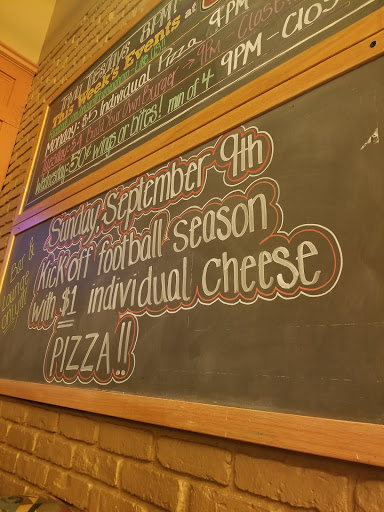 This Week's Events at
Monday: $5 Individual Pizza 9PM
$4 Build Your Own Burger → 9PM Close
Wednesday: 50¢ wings or bites! min of 4 9PM - Clos
Sunday, September 9th
Kick off football season
with $1 individual cheese
PIZZA!!
Bar &
Lounge
only